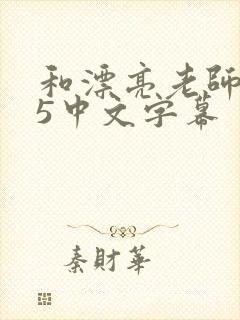 和漂亮老師
5中文字幕
秦財華